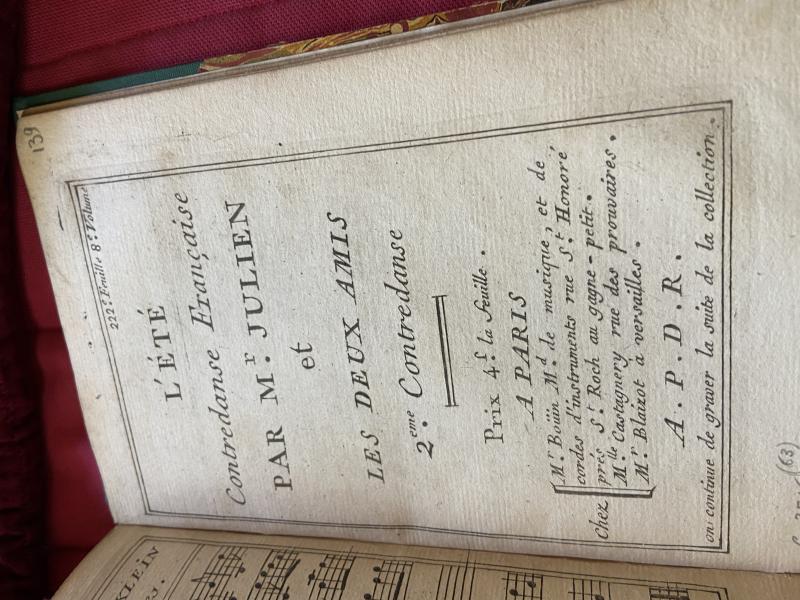 139
222.e Feuille 8.e Volume
L'ÉTÉ
Contredanse Française
PAR M.r JULIEN
et
LES DEUX AMIS
2.eme Contredanse
Prix 4.f la feuille.
A PARIS
Chez
M.r Boüin M.d de musique, et de
cordes d'instruments rue S.t Honoré
prés S.t Roch au gagne-petit.
M.lle Castagnery rue des prouvaires.
M.r Blaizot à versailles.
A.P.D.R.
on continue de graver la suite de la collection.
KLEIN
(63)